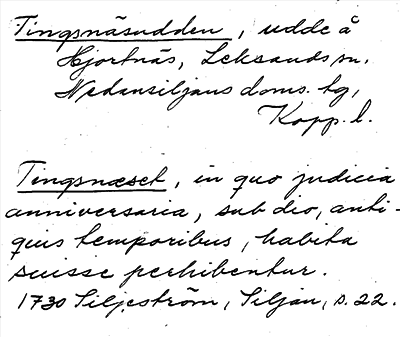 Tingsnäsudden, udde å
Hjortnäs, Leksands sn.
Nedansiljans doms. tg,
Kopp. l.
Tingsnæset, in quo judicia
anniversaria, sub dio, anti-
quis temporibus, habita
fuisse perhibentur.
1730 Siljeström, Siljan, s. 22.